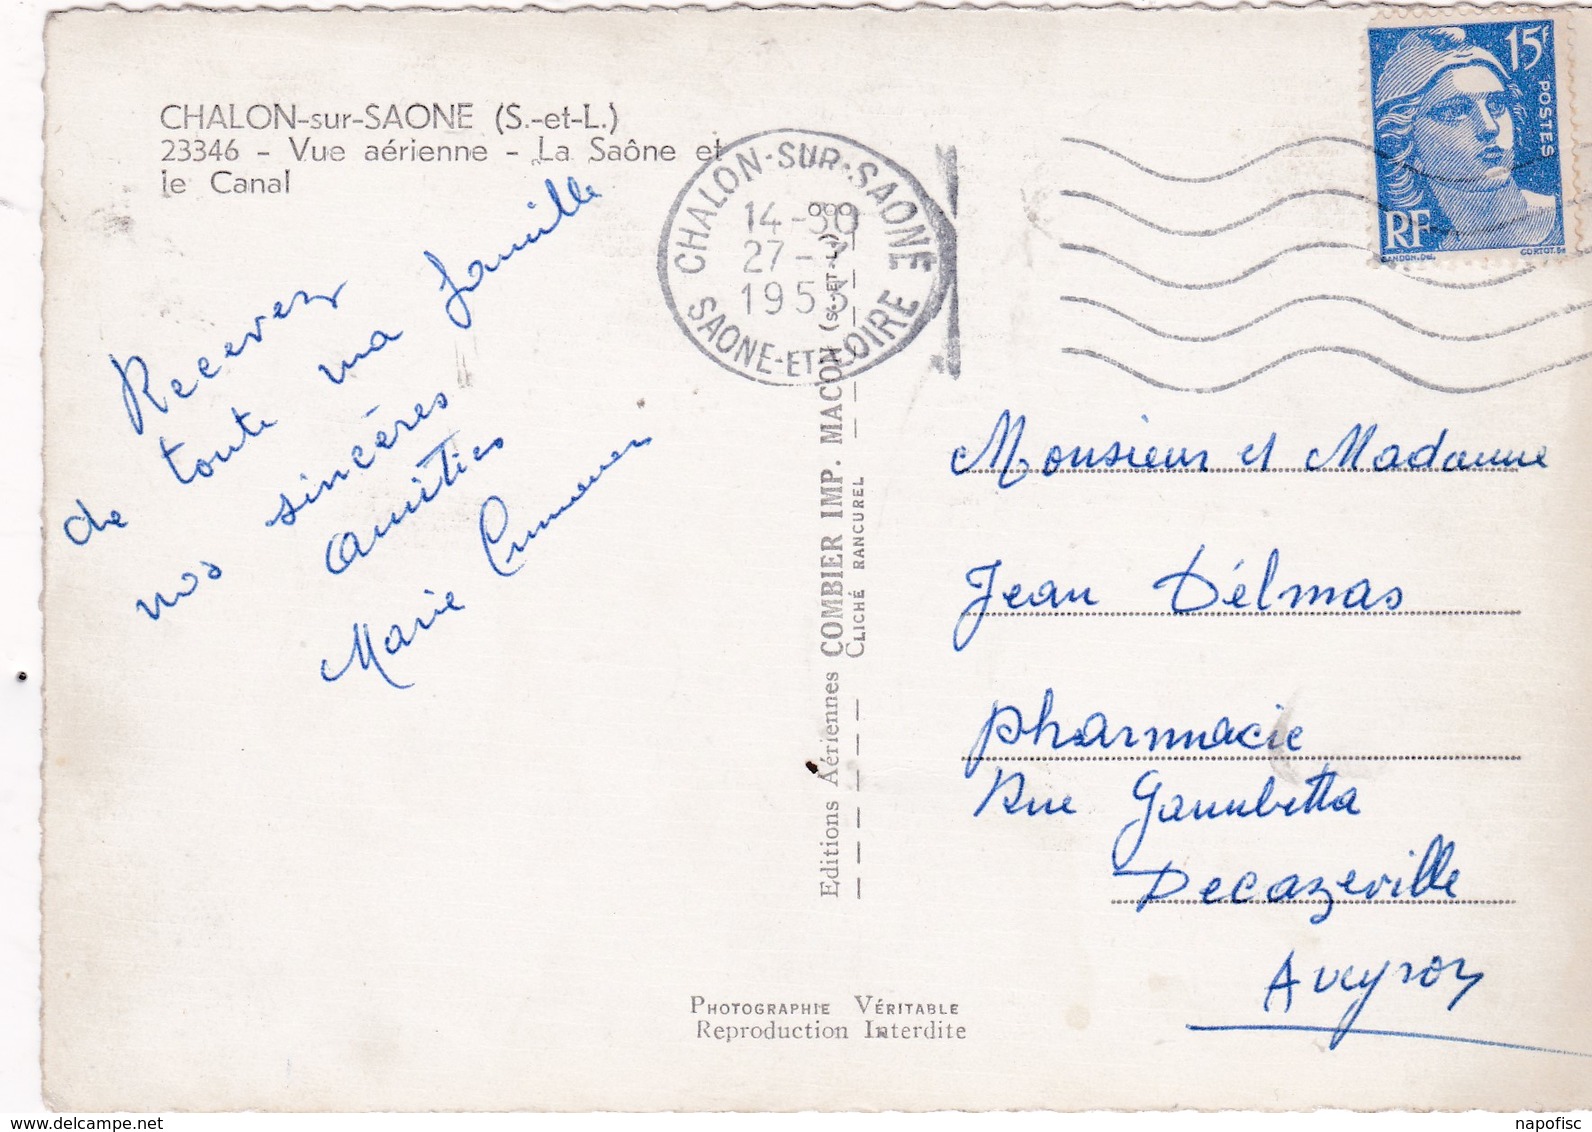 CHALON-sur-SAONE (S.-et-L.)
23346 - Vue aérienne - La Saône et
le Canal
Recevez
de toute ma famille
nos sincères
amitiés
Marie
CHALON-SUR-SAONE
27
1953
SAONE-ET-LOIRE
15F
POSTES
RF
GANDON.Del.
CORTOT.Sc
Editions Aériennes COMBIER IMP. MACON (S.-ET-L.)
CLICHÉ RANCUREL
Monsieur et Madame
Jean Délmas
pharmacie
Rue Gambetta
Decazeville
Aveyron
PHOTOGRAPHIE VÉRITABLE
Reproduction Interdite
www.delcampe.net
napofisc